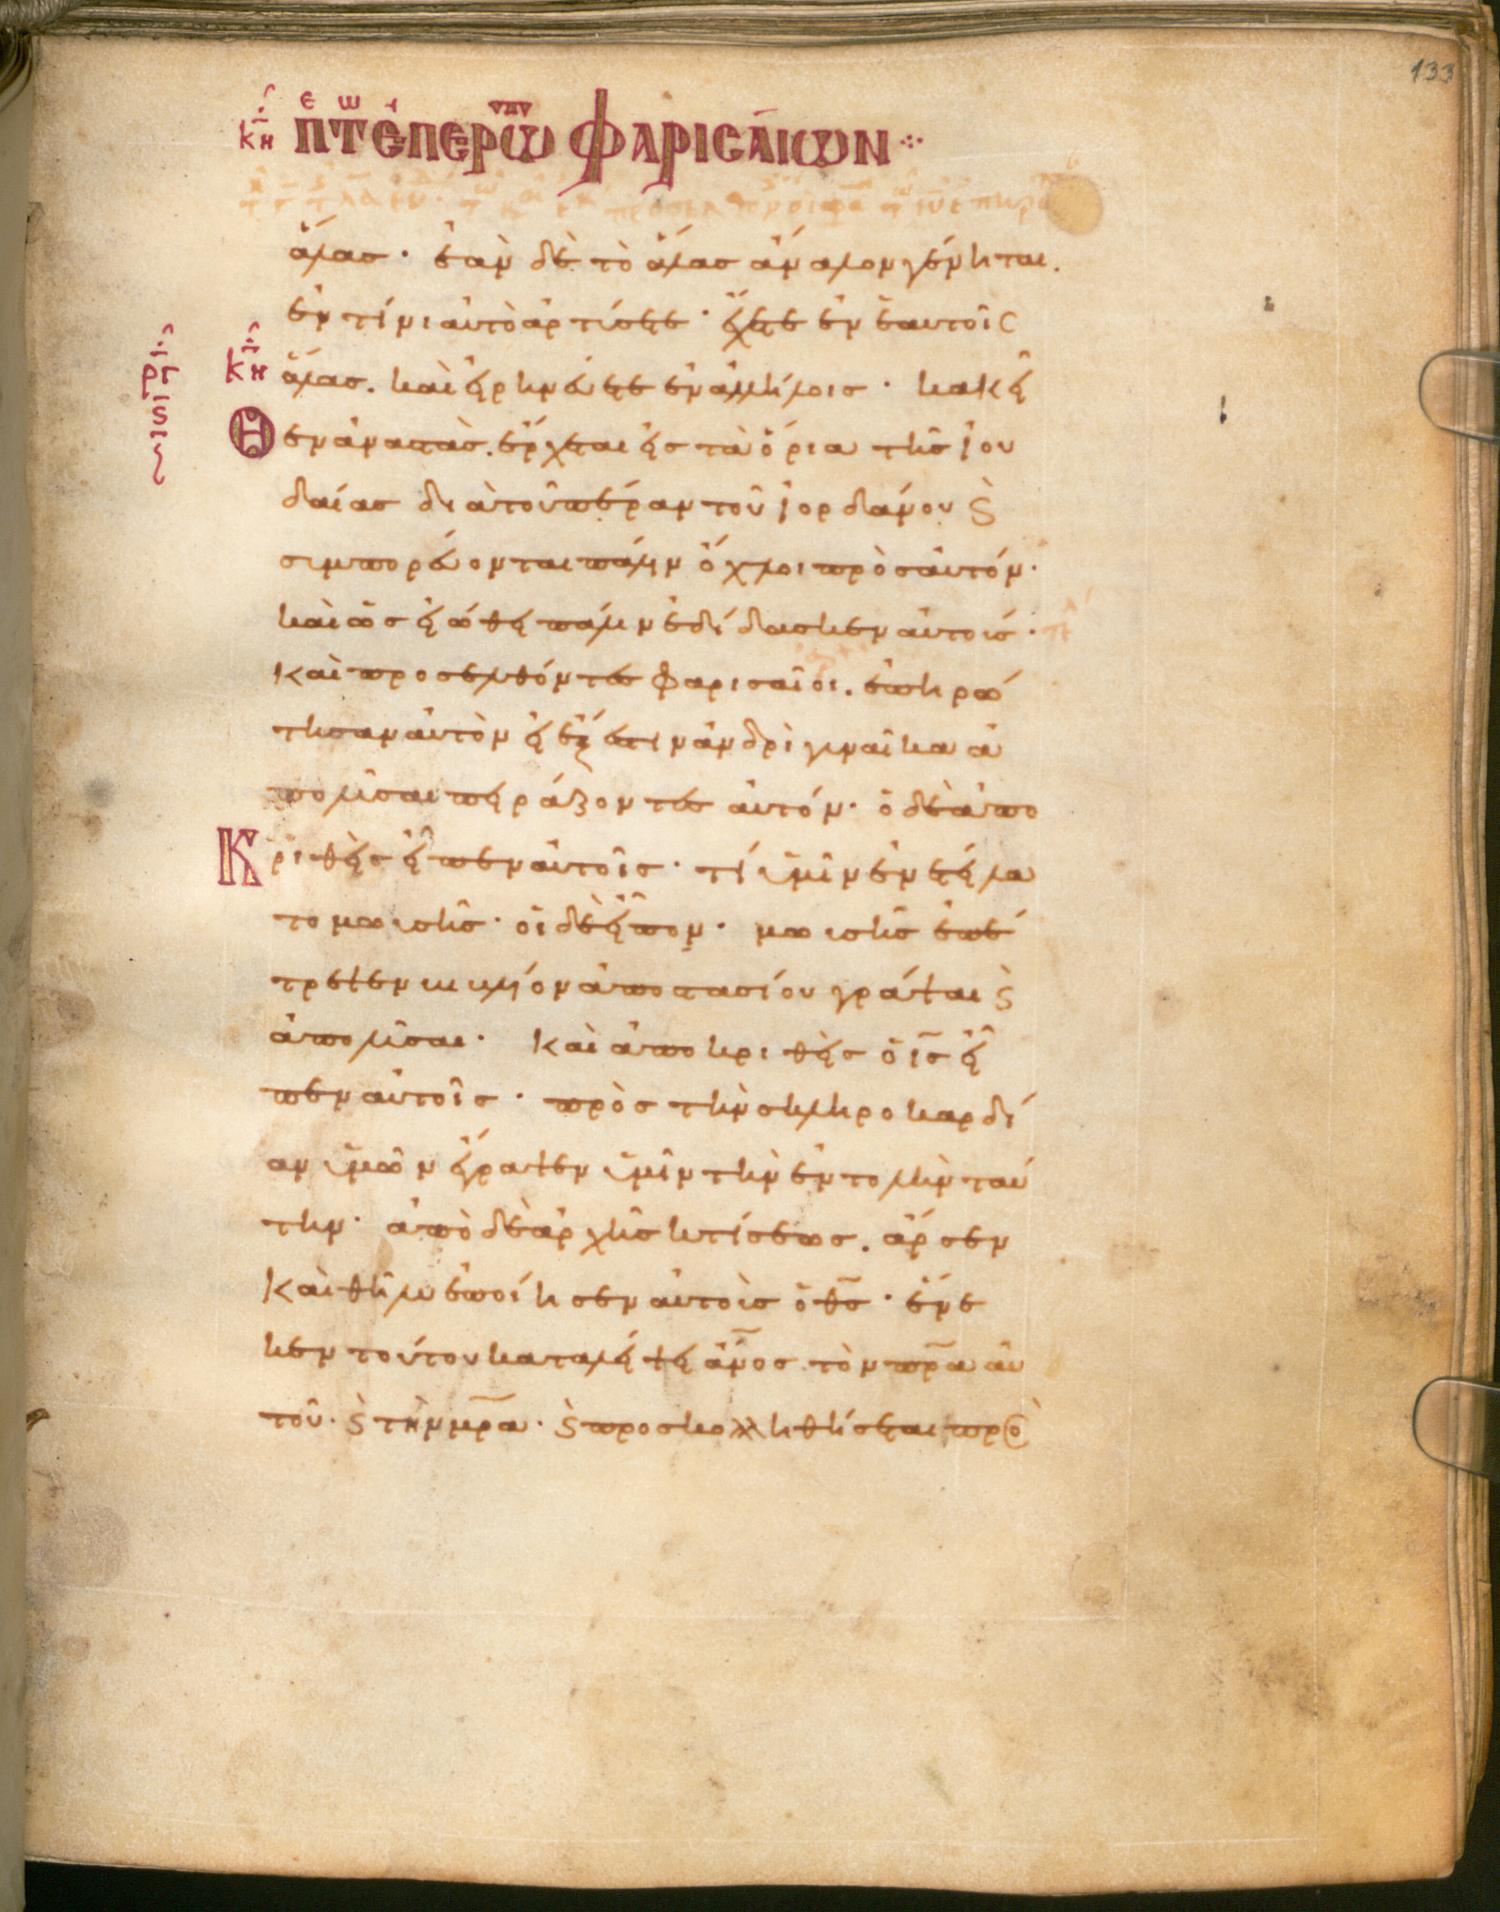 133
κη πτ επερω φαρισαίων
ἅλας · ἐὰν δὲ τὸ ἅλας ἄναλον γένηται.
ἐν τίνι αὐτὸ ἀρτύσετε · ἔχετε ἐν ἑαυτοῖς
κη ἅλας. καὶ εἰρηνεύετε ἐν ἀλλήλοις · κακεῖ
θεν ἀναστὰς. ἔρχεται εἰς τὰ ὅρια τῆς ἰου
δαίας διὰ τοῦ πέραν τοῦ ἰορδάνου ϛ
συμπορεύονται πάλιν ὄχλοι πρὸς αὐτόν·
καὶ ὡς εἰώθει πάλιν ἐδίδασκεν αὐτοίσ·
καὶ προσελθόντες φαρισαῖοι. ἐπηρώ
τησαν αὐτὸν εἰ ἔξεστιν ἀνδρὶ γυναῖκα ἀ
πολῦσαι πειράζοντες αὐτόν· ὁ δὲ ἀπο
Κριθεὶς εἶπεν αὐτοῖς · τί ὑμῖν ἐνετείλα
το μωισῆς · οἱ δὲ εἶπον · μωισῆς ἐπέ
τρεψεν βιβλίον ἀποστασίου γράψαι ϛ
ἀπολῦσαι · καὶ ἀποκριθεὶς ὁ ισ εἶ
πεν αὐτοῖς · πρὸς τὴν σκληροκαρδί
αν ὑμῶν ἔγραψεν ὑμῖν τὴν ἐντολὴν ταύ
την · ἀπὸ δὲ ἀρχῆς κτίσεως. ἄρσεν
καὶ θῆλυ ἐποίησεν αὐτοὺς ὁ θσ · ἕνε
κεν τούτου καταλείψει ἄνος τὸν πρα αὐ
τοῦ · ϛ τὴν μρα · ϛ προσκολληθήσεται πρὸ